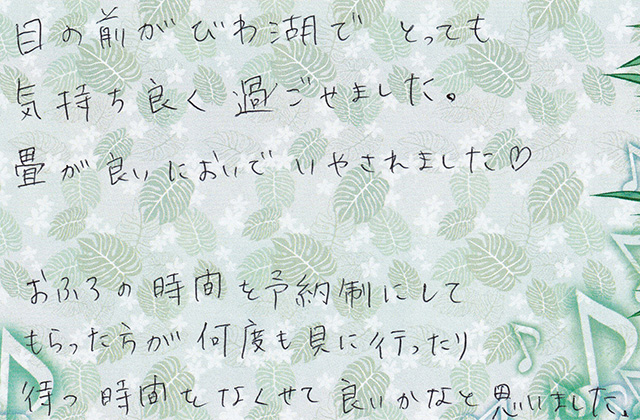 目の前がびわ湖で とっても
気持ち良く過ごせました。
畳が良いにおいで いやされました♡
おふろの時間を予約制にして
もらった方が何度も見に行ったり
待つ時間をなくせて良いかなと思いました。